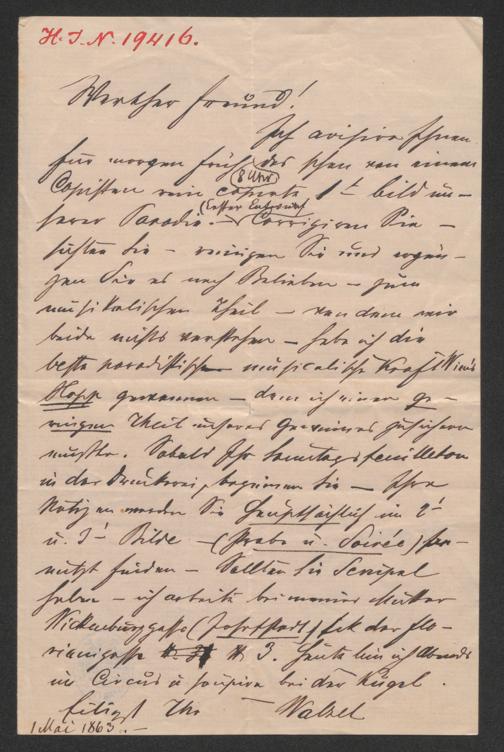 H. I. N. 19416.
Werther Freund!
Ich avisire Ihnen
für morgen früh 8 Uhr das schon von einem
Copisten rein copirte 1te Bild un-
serer Parodie. – (erster Entwurf) Corrigiren Sie –
sichten Sie – reinigen Sie und ergän-
zen Sie es nach Belieben – zum
musikalischen Theil – von dem wir
beide nichts verstehen – habe ich die
beste parodistische musicalische Kraft Wiens
Hopp gewonnen – dem ich einen ge-
ringen Theil unseres Gewinnes zusichern
mußte. Sobald Ihr Sonntagsfeuilleton
in der Druckerei, beginnen Sie – Ihre
Notizen werden Sie hauptsächlich im 2t
u. 3t Bilde – (Probe u. Soirée) be-
nützt finden – Sollten Sie Scrupel
haben – ich arbeite bei meiner Mutter
Wickenburggasse (Josefstadt) Eck der Flo-
rianigasse N 3. Heute bin ich Abends
im Circus u soupire bei der Kugel.
Eiligst Ihr Walzel
1 Mai 1863. –